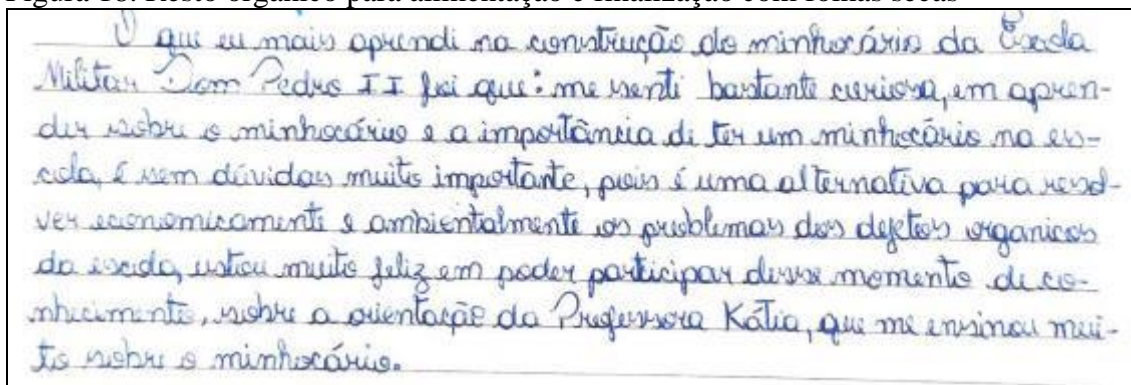 Figura 18: Resto orgânico para alimentação e finalização com folhas secas
O que eu mais aprendi na construção do minhocário da Escola
Militar Dom Pedro II foi que: me senti bastante curiosa, em apren-
der sobre o minhocário e a importância de ter um minhocário na es-
cola, é sem dúvidas muito importante, pois é uma alternativa para resol-
ver economicamente e ambientalmente os problemas dos dejetos organicos
da escola, estou muito feliz em poder participar desse momento de co-
nhecimento, sobre a orientação da Professora Kátia, que me ensinou mui-
to sobre o minhocário.